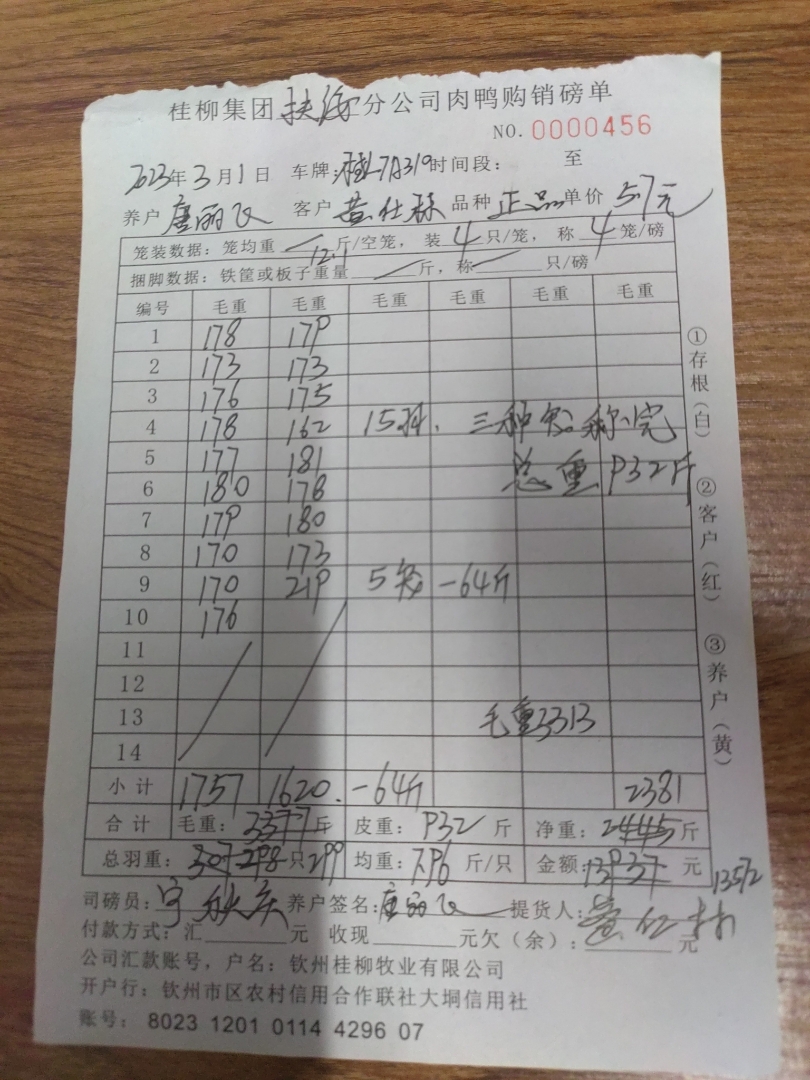 桂柳集团 扶海 分公司肉鸭购销磅单
NO. 0000456
2023年3月1日 车牌: 桂 时间段: 至
养户 唐丽飞 客户 黄仕 品种 正品 单价 5.7元
笼装数据: 笼均重 12.1 斤/空笼, 装 4 只/笼, 称 4 笼/磅
捆脚数据: 铁筐或板子重量 斤, 称 只/磅
编号 毛重 毛重 毛重 毛重 毛重 毛重
1 178 179
2 173 173
3 176 175
4 178 162 三种 称完
5 177 181 总重 932斤
6 180 178
7 179 180
8 170 173
9 170 219 5 -64斤
10 176
11
12
13 毛重3313
14
小计 1757 1620. -64斤 2381
合计 毛重: 3377 斤 皮重: 932 斤 净重: 2445 斤
总羽重: 307 298 只 299 均重: 7.96 斤/只 金额: 13937 元 13572
司磅员: 养户签名: 唐丽飞 提货人: 黄仕
付款方式: 汇 元 收现 元欠(余): 元
公司汇款账号, 户名: 钦州桂柳牧业有限公司
开户行: 钦州市区农村信用合作联社大垌信用社
账号: 8023 1201 0114 4296 07
①存根(白) ②客户(红) ③养户(黄)